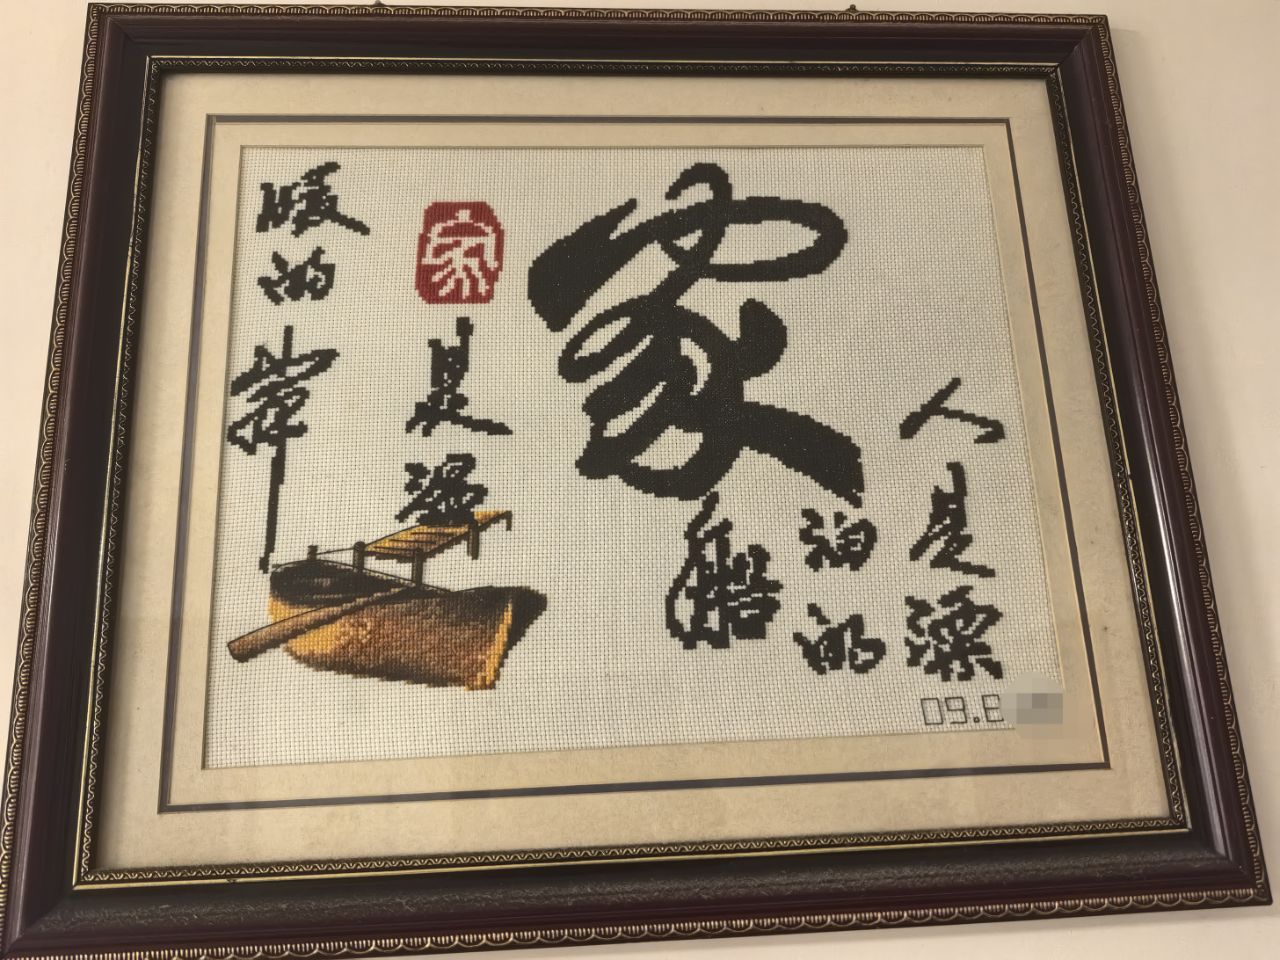 人是漂
泊的
船
家
家
是温
暖的岸
09.8